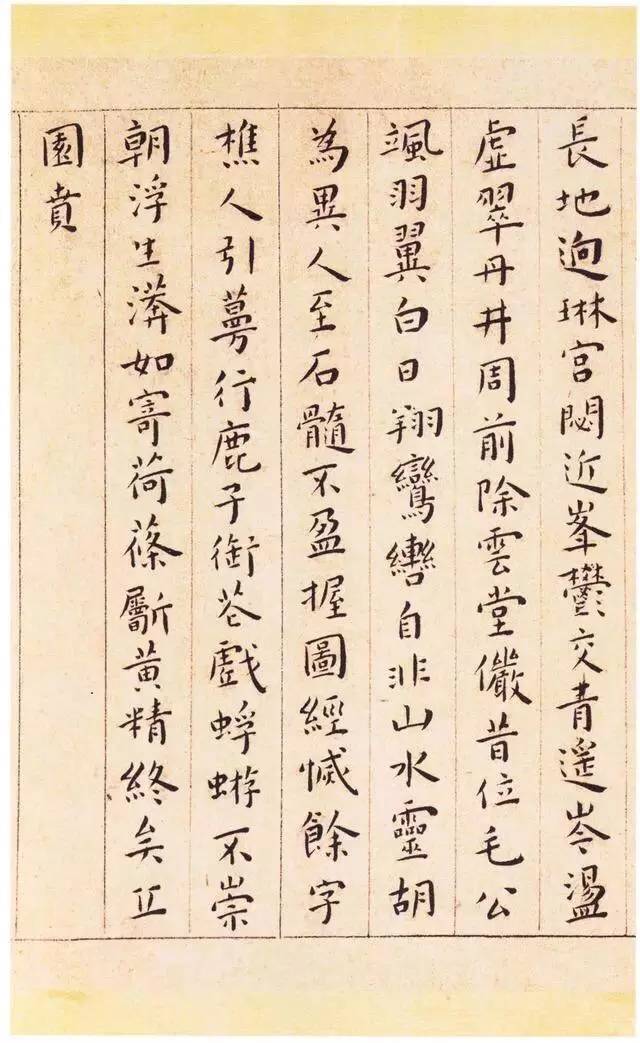 長地迥琳宮閟近峯鬱交青遥岑盪
虛翠丹井周前除雲堂儼昔位毛公
颯羽翼白日翔鸞轡自非山水靈胡
為異人至石髓不盈握圖經慽餘字
樵人引蔓行鹿子銜花戲蜉蝣不崇
朝浮生漭如寄荷蓧斸黄精終矣丘
園賁